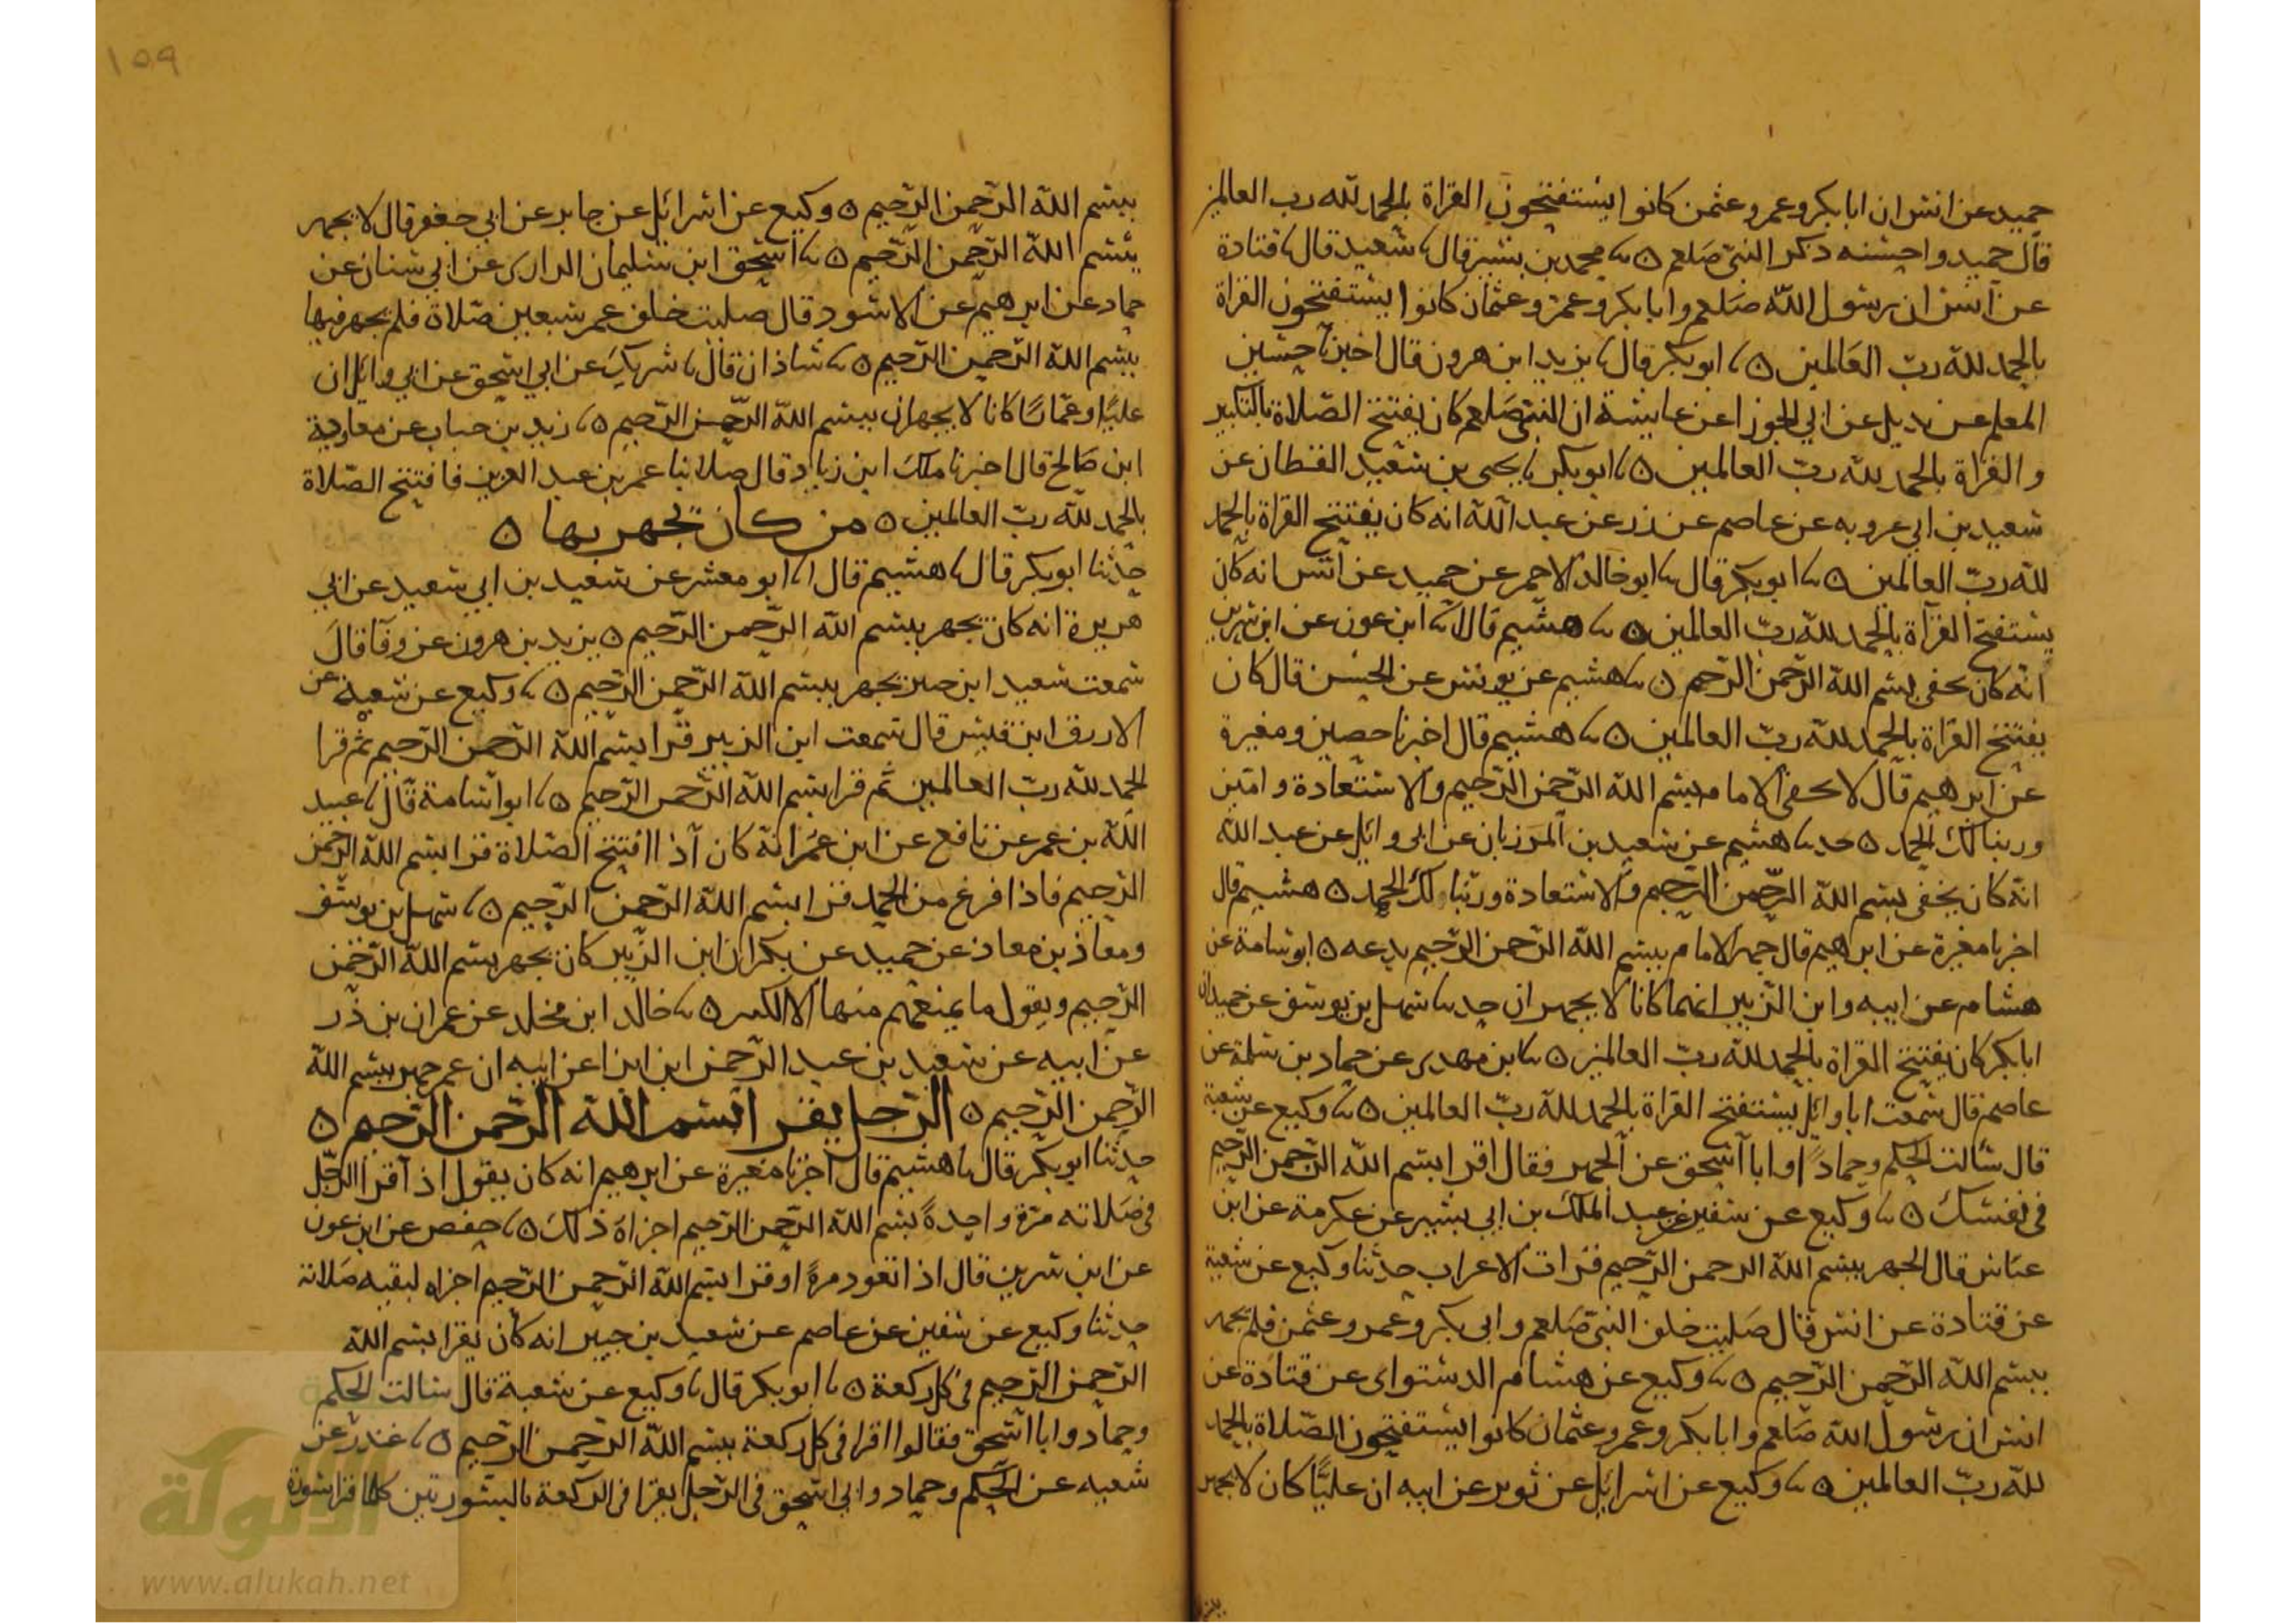 حميد عن انس ان ابا بكر وعمر وعثمن كانوا يستفتحون القراة بالحمد لله رب العالمين
قال حميد واحسبه ذكر النبي صلعم ٥ نا محمد بن بشر قال نا سعيد قال نا قتادة
عن انس ان رسول الله صلعم وابا بكر وعمر وعثمان كانوا يستفتحون القراة
بالحمد لله رب العالمين ٥ نا ابو بكر قال نا يزيد ابن هرون قال اخبرنا حسين
المعلم عن بديل عن ابي الجوزا عن عايشة ان النبي صلعم كان يفتتح الصلاة بالتكبير
والقراة بالحمد لله رب العالمين ٥ نا ابو بكر نا يحيى بن سعيد القطان عن
سعيد بن ابي عروبه عن عاصم عن زر عن عبد الله انه كان يفتتح القراة بالحمد
لله رب العالمين ٥ نا ابو بكر قال نا ابو خالد الاحمر عن حميد عن انس انه كان
يستفتح القراة بالحمد لله رب العالمين ٥ نا هشيم قال انا ابن عون عن ابن سيرين
انه كان يخفي بسم الله الرحمن الرحيم ٥ نا هشيم عن يونس عن الحسن قال كان
يفتتح القراة بالحمد لله رب العالمين ٥ نا هشيم قال اخبرنا حصين ومغيرة
عن ابرهيم قال لا يخفي الامام بسم الله الرحمن الرحيم والاستعاذة وامين
وربنا لك الحمد ٥ حد نا هشيم عن سعيد بن المرزبان عن ابي وايل عن عبد الله
انه كان يخفي بسم الله الرحمن الرحيم والاستعاذة وربنا لك الحمد ٥ هشيم قال
اخبرنا مغيرة عن ابرهيم قال جهر الامام ببسم الله الرحمن الرحيم بدعه ٥ ابو سامة عن
هشام عن ابيه وابن الزبير انهما كانا لا يجهران حد نا سهل بن يوسف عن حميد ان
ابا بكر كان يفتتح القراة بالحمد لله رب العالمين ٥ نا ابن مهدي عن حماد بن سلمة عن
عاصم قال سمعت ابا وايل يستفتح القراة بالحمد لله رب العالمين ٥ نا وكيع عن شعبة
قال سالت الحكم وحمادا وابا اسحق عن الجهر فقال اقرا بسم الله الرحمن الرحيم
في نفسك ٥ نا وكيع عن سفين عن عبد الملك بن ابي بشير عن عكرمة عن ابن
عباس قال الجهر ببسم الله الرحمن الرحيم قراة الاعراب حدثنا وكيع عن شعبة
عن قتادة عن انس قال صليت خلف النبي صلعم وابي بكر وعمر وعثمن فلم يجهر
ببسم الله الرحمن الرحيم ٥ نا وكيع عن هشام الدستواى عن قتادة عن
انس ان رسول الله صلعم وابا بكر وعمر وعثمان كانوا يستفتحون الصلاة بالحمد
لله رب العالمين ٥ نا وكيع عن اسرائيل عن ثوير عن ابيه ان عليا كان لا يجهر
١٥٩
ببسم الله الرحمن الرحيم ٥ وكيع عن اسرائيل عن جابر عن ابي جعفر قال لا يجهر
ببسم الله الرحمن الرحيم ٥ نا اسحق ابن سليمان الرازي عن ابي سنان عن
حماد عن ابرهيم عن الاسود قال صليت خلف عمر سبعين صلاة فلم يجهر فيها
ببسم الله الرحمن الرحيم ٥ نا شاذان قال نا شريك عن ابي اسحق عن ابي وائل ان
عليا وعمارا كانا لا يجهران ببسم الله الرحمن الرحيم ٥ نا زيد بن حباب عن معاوية
ابن صالح قال اخبرنا ملك ابن زياد قال صلا بنا عمر بن عبد العزيز فافتتح الصلاة
بالحمد لله رب العالمين ٥ من كان يجهر بها ٥
حدثنا ابو بكر قال نا هشيم قال انا ابو معشر عن سعيد بن ابي سعيد عن ابي
هريرة انه كان يجهر ببسم الله الرحمن الرحيم ٥ يزيد بن هرون عن وقا قال
سمعت سعيد ابن جبير يجهر ببسم الله الرحمن الرحيم ٥ نا وكيع عن شعبة عن
الازرق ابن قيس قال سمعت ابن الزبير قرا بسم الله الرحمن الرحيم ثم قرا
الحمد لله رب العالمين ثم قرا بسم الله الرحمن الرحيم ٥ نا ابو اسامة قال نا عبيد
الله بن عمر عن نافع عن ابن عمر انه كان اذا افتتح الصلاة قرا بسم الله الرحمن
الرحيم فاذا فرغ من الحمد قرا بسم الله الرحمن الرحيم ٥ نا سهل بن يوسف
ومعاذ بن معاذ عن حميد عن بكر ان ابن الزبير كان يجهر بسم الله الرحمن
الرحيم ويقول ما يمنعهم منها الا الكبر ٥ نا خالد ابن مخلد عن عمران بن ذر
عن ابيه عن سعيد بن عبد الرحمن ابن ابزا عن ابيه ان عمر جهر ببسم الله
الرحمن الرحيم ٥ الرجل يقرا بسم الله الرحمن الرحيم ٥
حدثنا ابو بكر قال نا هشيم قال اخبرنا مغيرة عن ابرهيم انه كان يقول اذا قرا الرجل
في صلاته مرة واحدة بسم الله الرحمن الرحيم اجزاه ذلك ٥ نا حفص عن ابن عون
عن ابن سرين قال اذا تعوذ مرة او قرا بسم الله الرحمن الرحيم اجزاه لبقيه صلاته
حدثنا وكيع عن سفين عن عاصم عن سعيد بن جبير انه كان يقرا بسم الله
الرحمن الرحيم في كل ركعة ٥ نا ابو بكر قال نا وكيع عن شعبة قال سالت الحكم
وحماد وابا اسحق فقالوا اقرا في كل ركعة ببسم الله الرحمن الرحيم ٥ نا غندر عن
شعبه عن الحكم وحماد وابي اسحق في الرجل يقرا في الركعة بالسورتين كلما قرا سورة
الألوكة
www.alukah.net